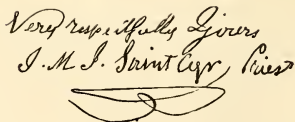 Very respectfully Yours
J. M. I. Saint Cyr, Priest